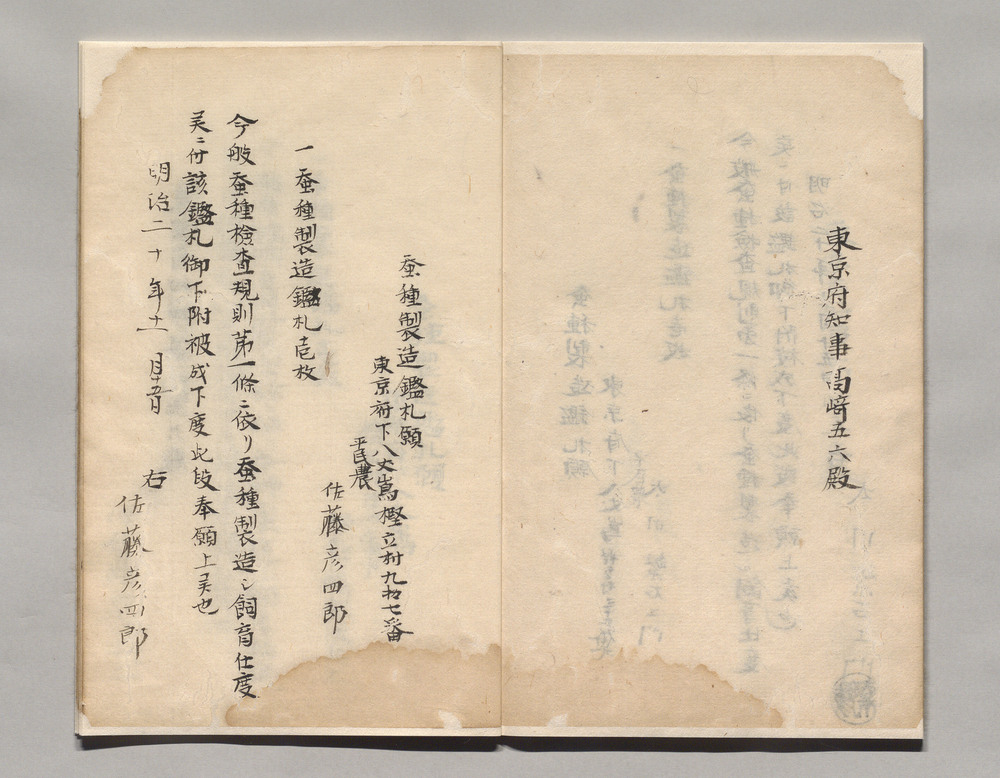 東京府知事高崎五六殿
蚕種製造鑑札願
東京府下八丈嶌樫立村九拾七番
平民農
佐藤彦四郎
一蚕種製造鑑札壱枚
今般蚕種検査規則第一條ニ依リ蚕種製造シ飼育仕度
ニ付該鑑札御下附被成下度此段奉願上也
明治二十年十一月十五日
右
佐藤彦四郎